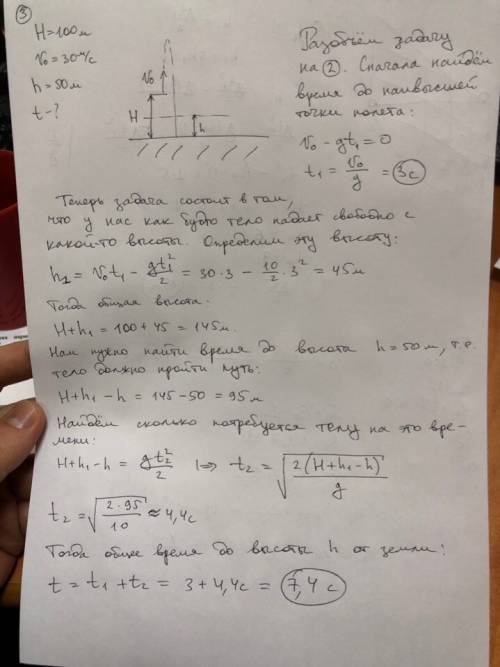 ③
H = 100 м
v₀ = 30 м/с
h = 50 м
t - ?
v₀
H
h
Разобьём задачу
на ②. Сначала найдём
время до наивысшей
точки полета:
v₀ - gt₁ = 0
t₁ = v₀/g = 3с
Теперь задача состоит в том,
что у нас как будто тело падает свободно с
какой-то высоты. Определим эту высоту:
h₁ = v₀t₁ - gt₁²/2 = 30·3 - 10/2·3² = 45м
Тогда общая высота:
H+h₁ = 100 + 45 = 145м.
Нам нужно найти время до высоты h = 50м, т.е.
тело должно пройти путь:
H+h₁-h = 145-50 = 95м
Найдём сколько потребуется телу на это вре-
мени:
H+h₁-h = gt₂²/2 |⇒ t₂ = √(2(H+h₁-h)/g)
t₂ = √(2·95/10) ≈ 4,4с
Тогда общее время до высоты h от земли:
t = t₁ + t₂ = 3 + 4,4с = 7,4 с